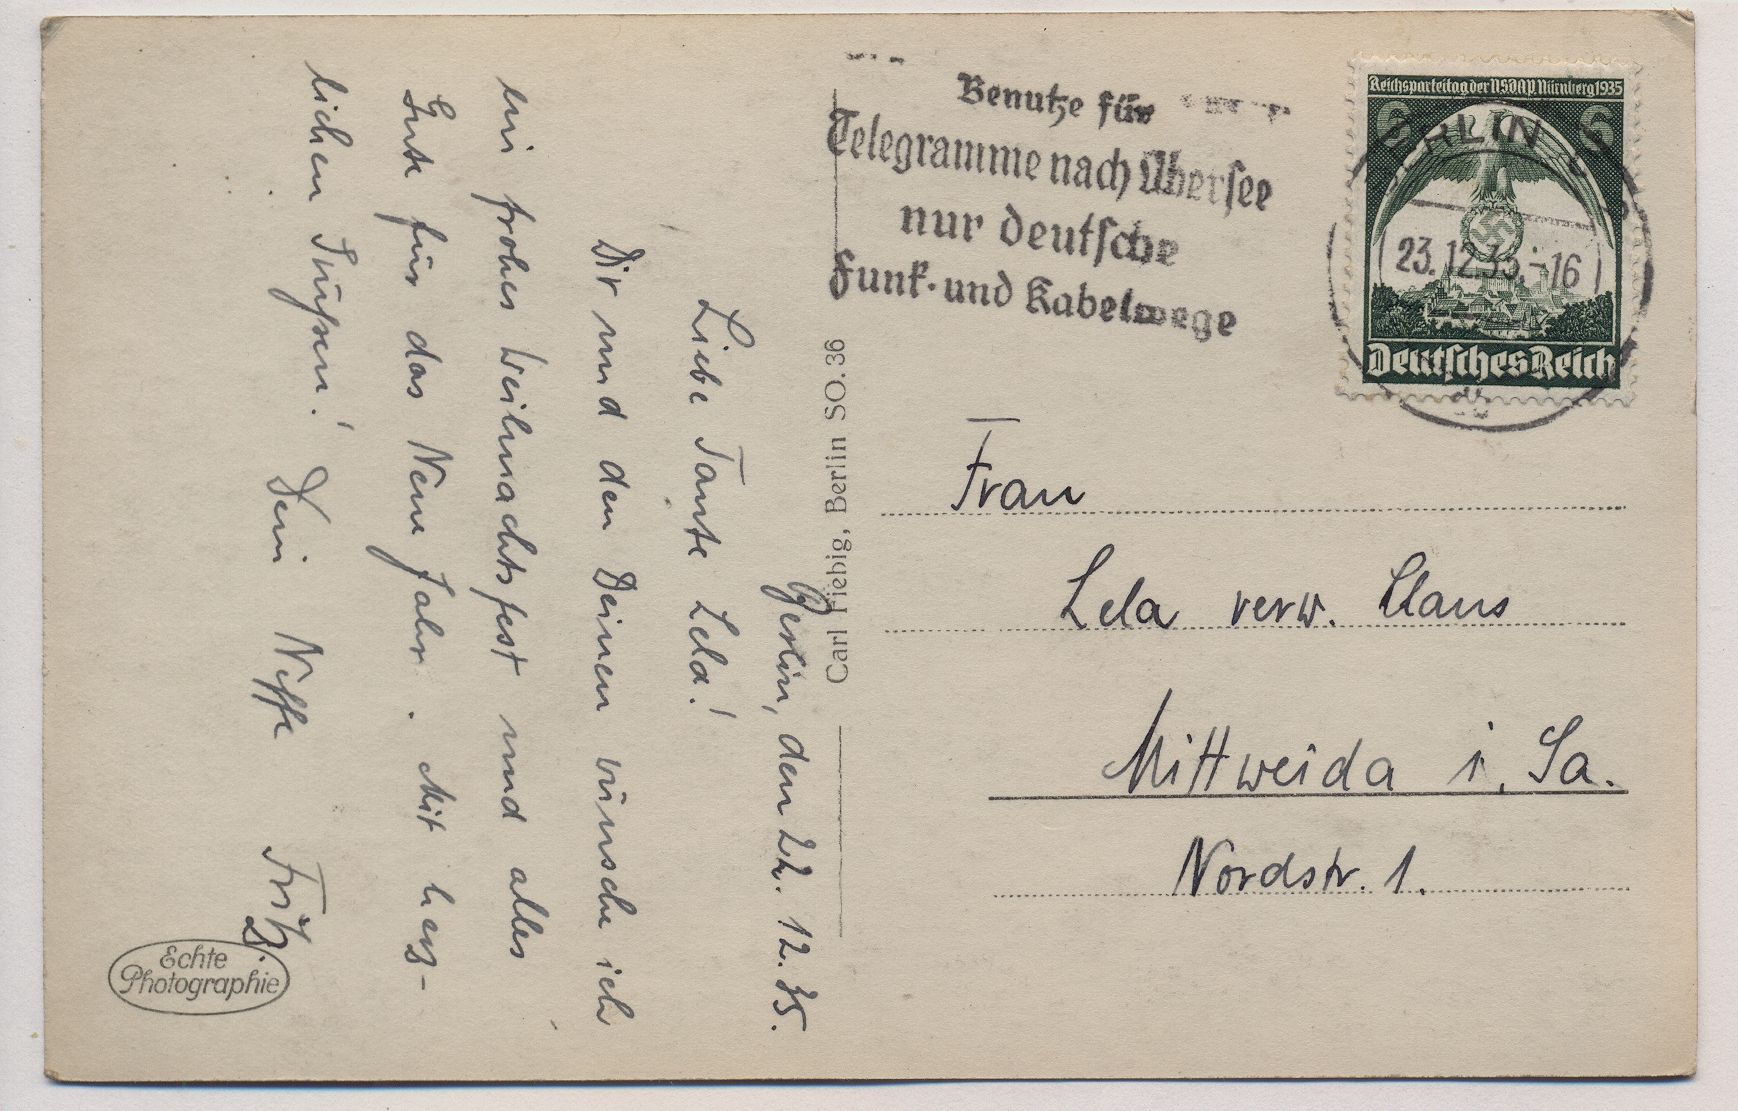 Berlin, den 22. 12. 35.
Liebe Tante Lela!
Dir und den Deinen wünsche ich
ein frohes Weihnachtsfest und alles
Gute für das Neue Jahr. Mit herz-
lichen Grüßen! Dein Neffe Fritz.
Echte
Photographie
Carl Fiebig, Berlin SO. 36
Benutze für
Telegramme nach Übersee
nur deutsche
Funk- und Kabelwege
Reichsparteitag der NSDAP. Nürnberg 1935
6 6
BERLIN
23.12.35.-16
Deutsches Reich
Frau
Lela verw. Claus
Mittweida i. Sa.
Nordstr. 1.